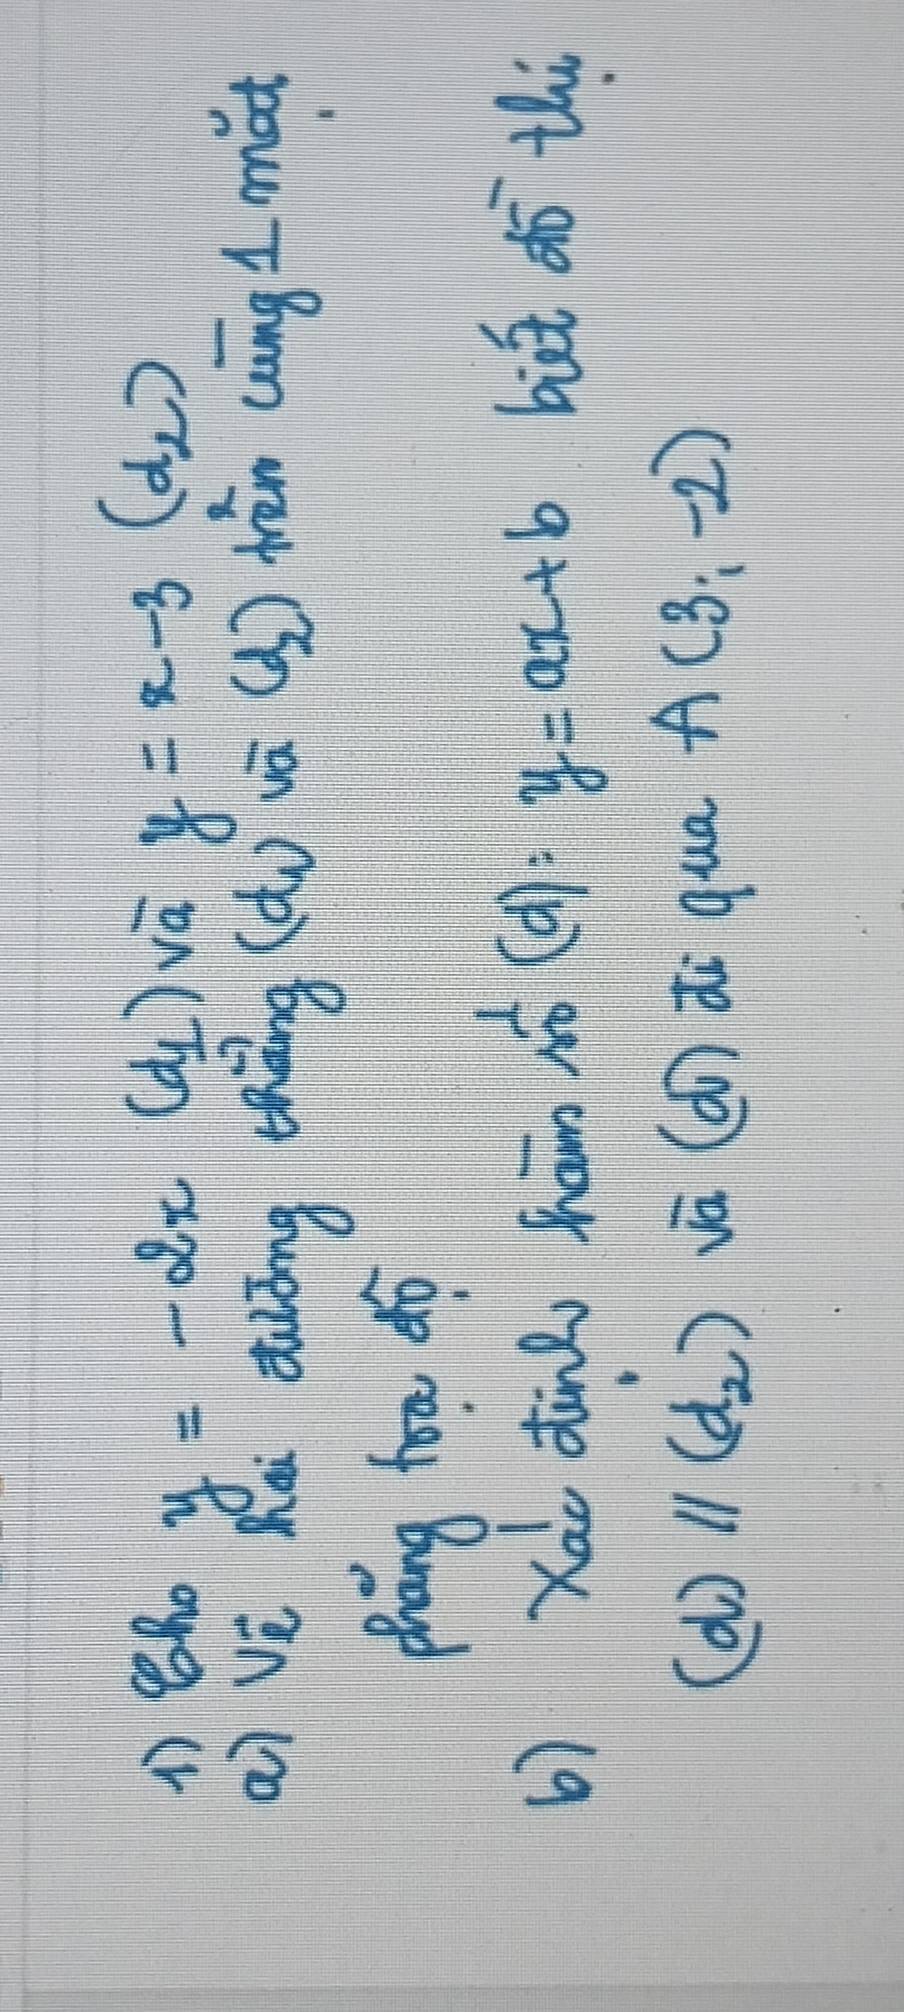 1) Cho y = -2x (d1) và y = x-3 (d2)
a) Vẽ hai đường thẳng (d1) và (d2) trên cùng 1 mặt
phẳng tọa độ
b) Xác định hàm số (d): y = ax+b biết đồ thị
(d) // (d2) và (d) đi qua A (3; -2)